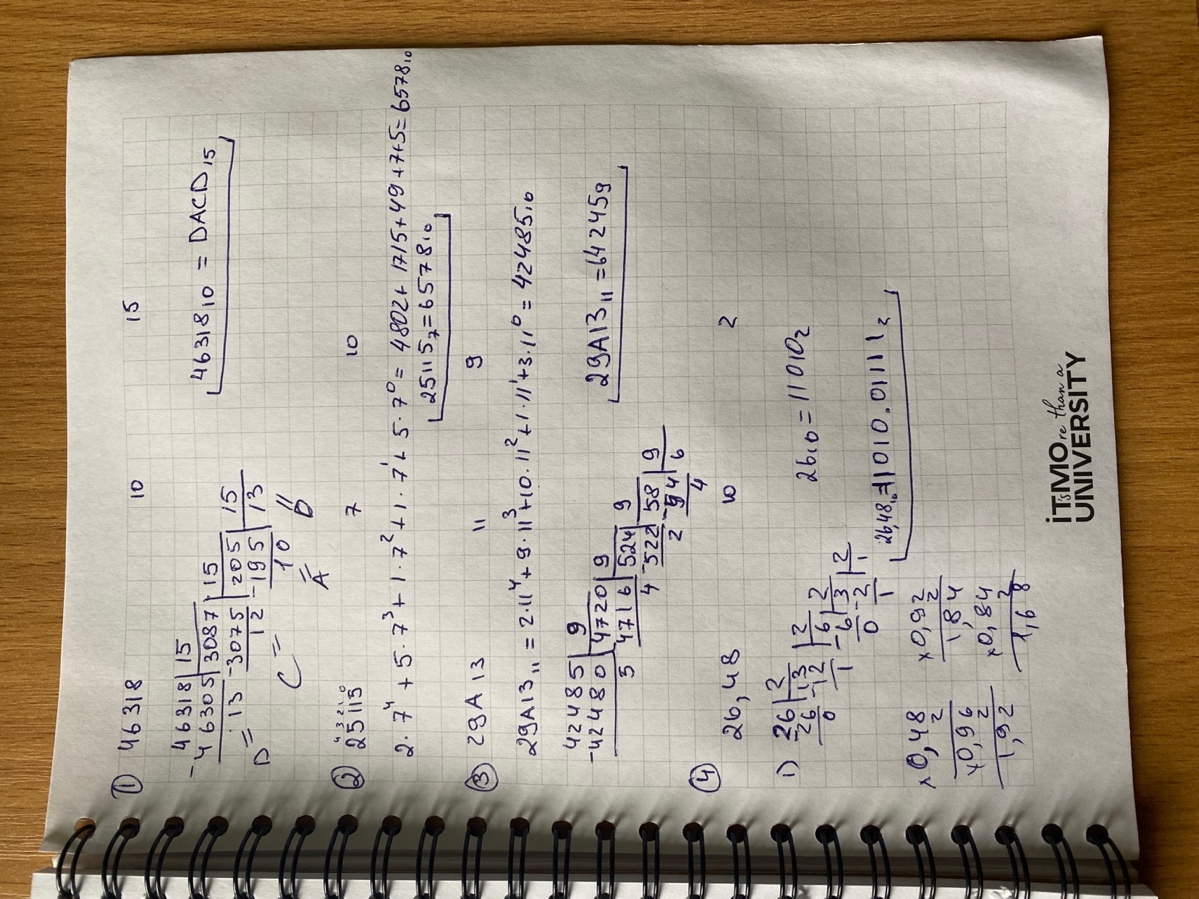 ① 46318 10 15
-46318 | 15
46305 | 3087 | 15
D = 13 -3075 | 205 | 15
12 -195 | 13
C = 10 = D
= A
46318₁₀ = DACD₁₅
② 25115 7 10
4 3 2 1 0
2·7⁴ + 5·7³ + 1·7² + 1·7¹ + 5·7⁰ = 4802 + 1715 + 49 + 7 + 5 = 6578₁₀
25115₇ = 6578₁₀
③ 29A13 11 9
29A13₁₁ = 2·11⁴ + 9·11³ + 10·11² + 1·11¹ + 3·11⁰ = 42485₁₀
42485 | 9
-42480 | 4720 | 9
5 4716 | 524 | 9
4 -522 | 58 | 9
2 -54 | 6
4
29A13₁₁ = 64245₉
④ 26,48 10 2
1) 26 | 2
-26 | 13 | 2
0 -12 | 6 | 2
1 -6 | 3 | 2
0 -2 | 1
1
26₁₀ = 11010₂
×0,48
2
×0,96
2
1,92
×0,92
2
1,84
×0,84
2
1,68
26,48₁₀ = 11010.01111₂
ITsMOre than a
UNIVERSITY